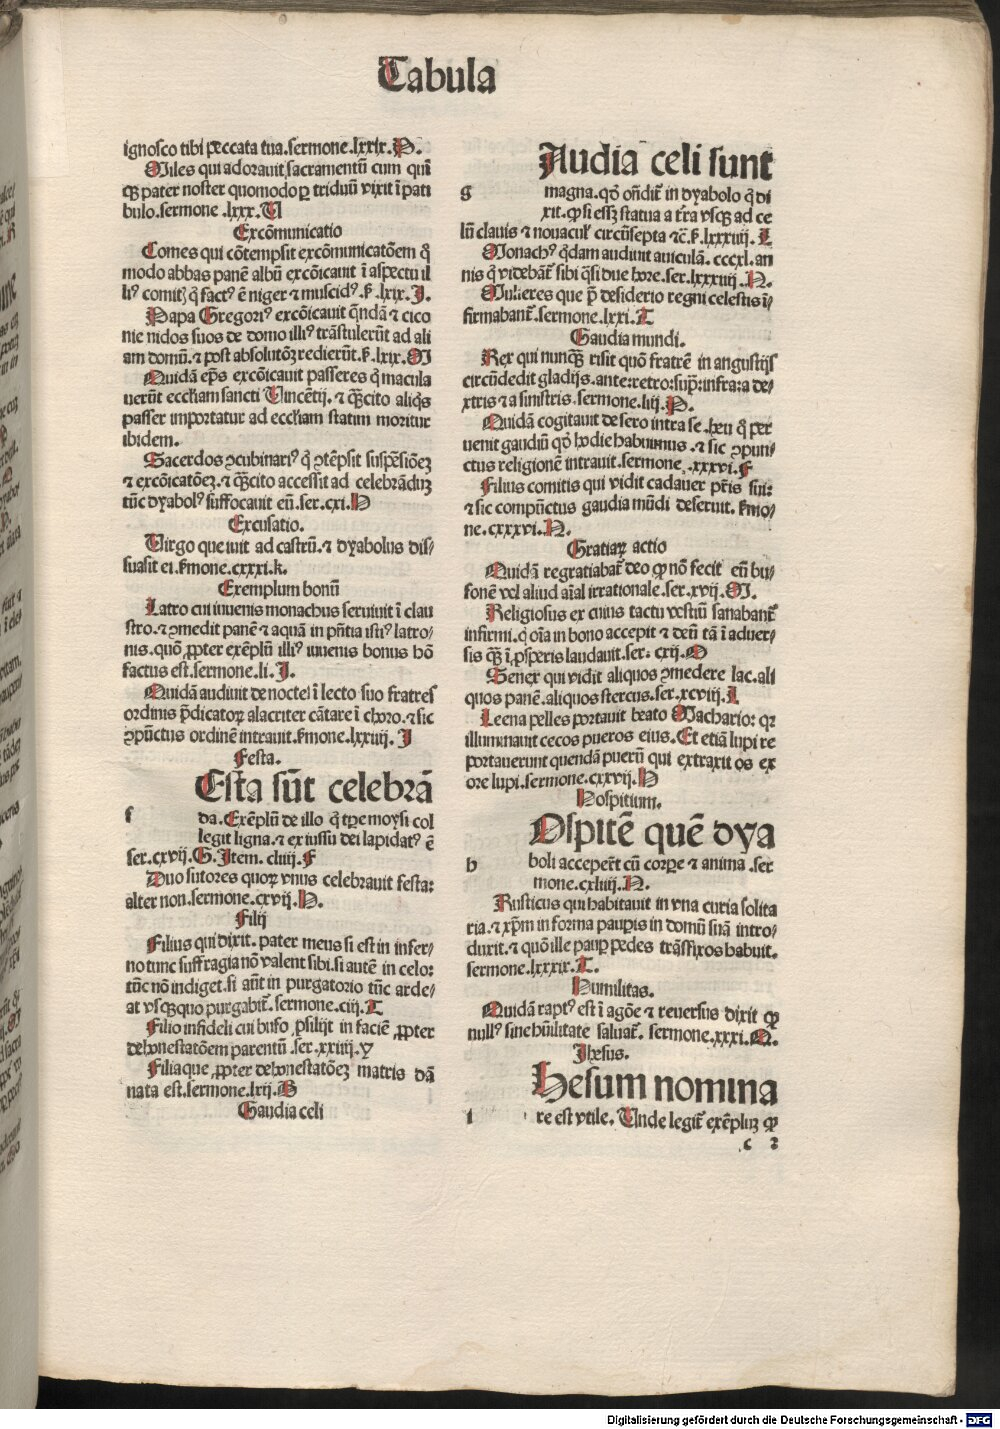 Tabula
ignosco tibi peccata tua.sermone.lxxix.P.
Miles qui adorauit sacramentū cum quin
qꝫ pater noster quomodo ꝑ triduū vixit ī pati
bulo.sermone .lxxx.U
Excōmunicatio
Comes qui cōtempsit excōmunicatōem qͦ
modo abbas panē albū excōicauit ī aspectu il
liꝰ comitꝭ qͥ factꝰ ē niger ⁊ muscidꝰ.ẜ.lxix.I.
Papa Gregoriꝰ excōicauit qͣndā ⁊ cico
nie nidos suos de domo illiꝰ trāstulerūt ad ali
am domū.⁊ post absolutōꝫ redierūt.ẜ.lxix.M
Quidā ep̄s excōicauit passeres qͥ macula
uerūt eccl̄iam sancti Vincētij.⁊ qꝫcito aliqͥs
passer importatur ad eccl̄iam statim moritur
ibidem.
Sacerdos ꝯcubinariꝰ qͥ ꝯtēpsit suspēsiōeꝫ
⁊ excōicatōeꝫ.⁊ qꝫcito accessit ad celebrāduꝫ
tūc dyabolꝰ suffocauit eū.ser.cxi.N
Excusatio.
Virgo que iuit ad castrū.⁊ dyabolus dis⸗
suasit ei.ẜmone.cxxxi.k.
Exemplum bonū
Latro cui iuuenis monachus seruiuit ī clau
stro.⁊ ꝯmedit panē ⁊ aquā in pn̄tia istiꝰ latro⸗
nis.quō ꝓpter exēplū illiꝰ iuuenis bonus hō
factus est.sermone.li.I.
Quidā audiuit de nocte ī lecto suo fratres
ordinis p̄dicatoꝝ alacriter cātare ī choro.⁊ sic
ꝯpūctus ordinē intrauit.ẜmone.lxxiiij.I
Festa.
Esta sūt celebrā
f da.Exēplū de illo qͥ tꝑe moysi col
legit ligna.⁊ ex iussu dei lapidatꝰ ē
ser.cxvij.G.Item. cliiij.F
Duo sutores quoꝝ vnus celebrauit festa:
alter non.sermone.cxvij.H.
Filij
Filius qui dixit.pater meus si est in infer⸗
no tunc suffragia nō valent sibi.si autē in celo:
tūc nō indiget.si aūt in purgatorio tūc arde⸗
at vsqꝫquo purgabit̄.sermone.ciij.T
Filio infideli cui bufo ꝓsilijt in faciē ꝓpter
dehonestatōem parentū .ser.xxiiij.y
Filia que ꝓpter dehonestatōeꝫ matris dā
nata est.sermone.lxij.B
Gaudia celi
Audia celi sunt
g magna.qꝰ on̄dit̄ in dyabolo qͥ di
xit.ꝙ si essꝫ statua a t̄ra vsqꝫ ad ce
lū clauis ⁊ nouaculꝭ circūsepta ⁊c̄.ẜ.lxxxiiij.L
Monachꝰ qͥdam audiuit auiculā.cccxl.an
nis qͥ videbāt̄ sibi qͣsi due hore.ser.lxxxiiij.N.
Mulieres que p̄ desiderio regni celestis ī⸗
firmabant̄.sermone.lxxi.T
Gaudia mundi.
Rex qui nunqꝫ risit quō fratrē in angustijs
circūdedit gladijs.ante:retro:supͣ:infra:a de⸗
xtris ⁊ a sinistris.sermone.liij.P.
Quidā cogitauit de sero intra se.heu qͥ per
uenit gaudiū qͦ hodie habuimus .⁊ sic ꝯpun⸗
ctus religionē intrauit.sermone .xxxvi.F
Filius comitis qui vidit cadauer pr̄is sui:
⁊ sic compūctus gaudia mūdi deseruit. ẜmo⸗
ne.cxxxvi.N.
Gratiaꝝ actio
Quidā regratiabat̄ deo ꝙ nō fecit eū bu⸗
fonē vel aliud aīal irrationale.ser.xvij.M.
Religiosus ex cuius tactu vestiū sanabant̄
infirmi.qͥ oīa in bono accepit ⁊ deū tā ī aduer⸗
sis qꝫ ī ꝓsperis laudauit.ser.cxij.O
Senex qui vidit aliquos ꝯmedere lac.ali
quos panē.aliquos stercus.ser.xcviij.L
Leena pelles portauit beato Machario: qꝛ
illuminauit cecos pueros eius.Et etiā lupi re
portauerunt quendā puerū qui extraxit os ex
ore lupi.sermone.cxxvij.N
Hospitium.
Ospitē quē dya
h boli acceper̄t cū corꝑe ⁊ anima .ser
mone.cxliiij.N.
Rusticus qui habitauit in vna curia solita
ria.⁊ xp̄m in forma pauꝑis in domū suā intro⸗
duxit.⁊ quō ille pauꝑ pedes trāsfixos habuit.
sermone.lxxxix.T.
Humilitas.
Quidā raptꝰ est ī agōe ⁊ reuersus dixit ꝙ
nullꝰ sine hūilitate saluat̄. sermone.xxxi.M.
Ihesus.
Hesum nomina
i re est vtile. Unde legit̄ exēpluꝫ ꝙ
c 2
Digitalisierung gefördert durch die Deutsche Forschungsgemeinschaft - DFG